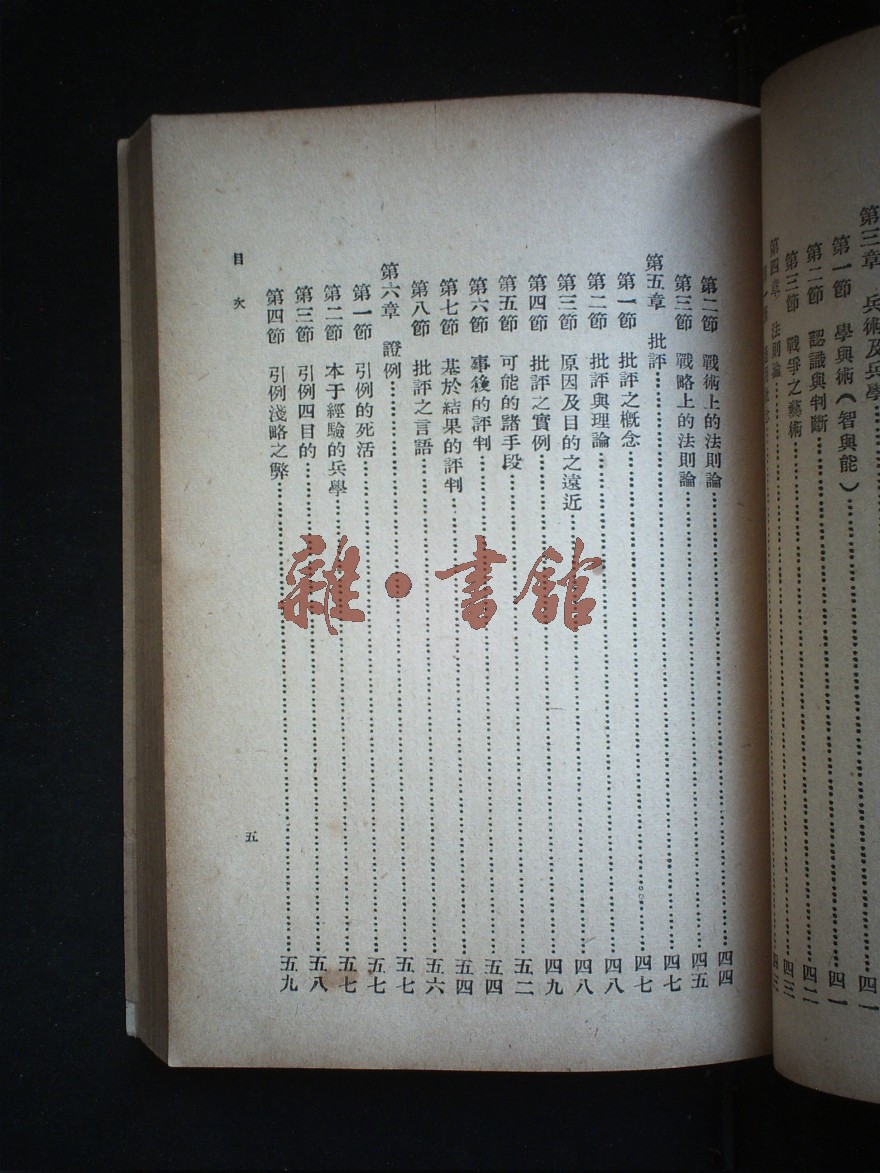 第三章　兵術及兵學……四一
第一節　學與術（智與能）……四一
第二節　認識與判斷……四二
第三節　戰爭之藝術……四三
第四章　法則論……四三
第二節　戰術上的法則論……四四
第三節　戰略上的法則論……四五
第五章　批評……四七
第一節　批評之概念……四七
第二節　批評與理論……四八
第三節　原因及目的之遠近……四八
第四節　批評之實例……四九
第五節　可能的諸手段……五二
第六節　事後的評判……五四
第七節　基於結果的評判……五四
第八節　批評之言語……五六
第六章　證例……五七
第一節　引例的死活……五七
第二節　本于經驗的兵學……五七
第三節　引例四目的……五八
第四節　引例淺略之弊……五九
目次
五
雜·書館